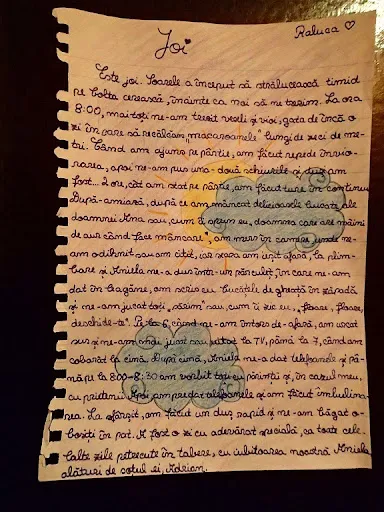 Raluca
Joi
Este joi. Soarele a început să strălucească timid
pe bolta cerească, înainte ca noi să ne trezim. La ora
8:00, mai toți ne-am trezit veseli și vioi, gata de încă o
zi în care să recălcăm "macaroanele" lungi de zeci de me-
tri. Când am ajuns pe pârtie, am făcut repede învio-
rarea, apoi ne-am pus una-două schiurile și duși am
fost... 2 ore, cât am stat pe pârtie, am făcut ture în continuu
După-amiază, după ce am mâncat delicioasele bucate ale
doamnei Ana sau, cum îi spun eu, "doamna care are mâini
de aur când face mâncare", am mers în camere unde ne-
am odihnit sau am citit, iar seara am ieșit afară, la plim-
bare și Aniela ne-a dus într-un părculeț, în care ne-am
dat în leagăne, am scris cu bucățile de gheață în zăpadă
și ne-am jucat toți "părim" sau, cum îi zic eu, "floare, floare,
deschide-te". Pe la 6, când ne-am întors de-afară, am urcat
sus și ne-am jucat sau uitat la TV, până la 7, când am
coborât la cină. După cină, Aniela ne-a dat telefoanele și pâ-
nă pe la 8:00-8:30 am vorbit toți cu părinții și, în cazul meu,
cu prietenii. Apoi am predat telefoanele și am făcut îmbulină-
rea. La sfârșit, am făcut un duș rapid și ne-am băgat o-
bosiți în pat. A fost o zi cu adevărat specială, ca toate cele-
lalte zile petrecute în tabere, cu iubitoarea noastră Aniela
alături de soțul ei, Adrian.